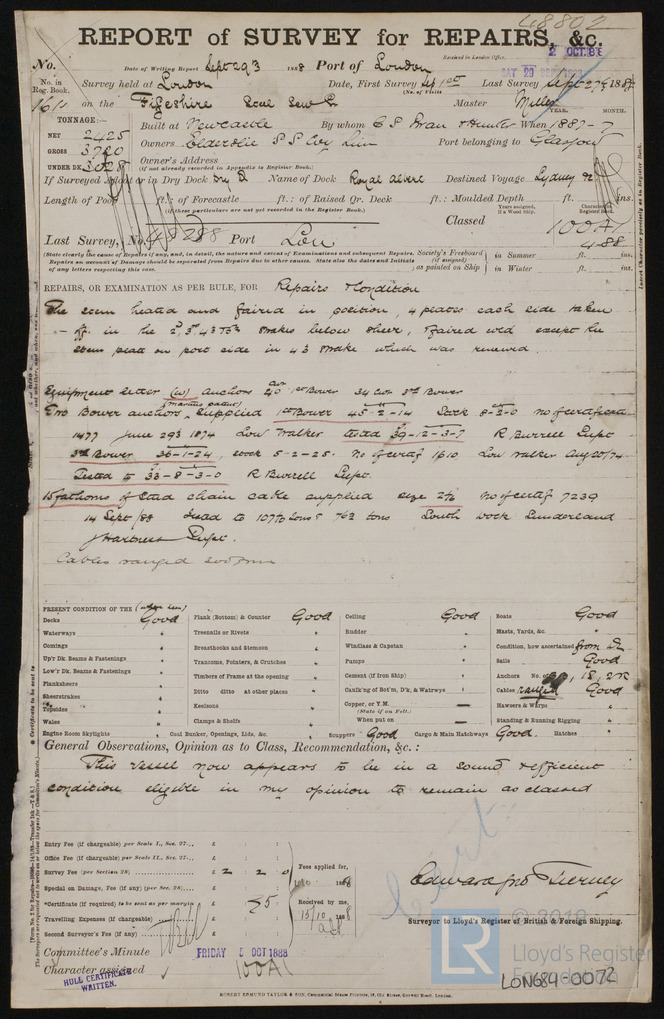 48802
REPORT of SURVEY for REPAIRS, &c.
Received in London Office,
2 OCT. 88
No. Date of Writing Report Sept 29 1888 Port of London
SAT 29 SEP
No. in Reg. Book. Survey held at London Date, First Survey Last Survey Sept 27th 1888
(No. of Visits
on the Fifeshire Master Miller
YEAR. MONTH.
TONNAGE:—
Built at Newcastle By whom C S Swan & Hunter When 1887-7
NET 2425
Owners Elderslie S S Coy Lim Port belonging to Glasgow
GROSS 3720
Owner's Address
(if not already recorded in Appendix to Register Book.)
UNDER DK 3028
If Surveyed Afloat or in Dry Dock Dry D Name of Dock Royal Albert Destined Voyage Sydney &c
Length of Poop ft.: of Forecastle ft.: of Raised Qr. Deck ft.: Moulded Depth ft. ins.
(If these particulars are not yet recorded in the Register Book.)
Years assigned, if a Wood Ship.
Classed 100A1
4 88
Last Survey, No. 48288 Port Lon
(State clearly the cause of Repairs if any, and, in detail, the nature and extent of Examinations and subsequent Repairs. Repairs on account of Damage should be separated from Repairs due to other causes. State also the dates and Initials of any letters respecting this case.
Society's Freeboard (if assigned) as painted on Ship
in Summer ft. ins.
in Winter ft. ins.
REPAIRS, OR EXAMINATION AS PER RULE, FOR Repairs & Condition
The stem heated and faired in position, 4 plates each side taken
off in the 2d 3rd 4 & 5th strakes below sheer, & faired except the
stem plate on port side in 4th strake which was renewed.
Equipment letter (W) anchors 40 1st Bower 34 3rd Bower
Two Bower anchors supplied 1st Bower 45-2-14 Stock 8-2-0 no of certificate
1477 June 29 1874 Low Walker tested 39-12-3-7 R Burrell Supt
3rd Bower 36-1-24, stock 5-2-25. No of certif 1610 Low Walker Aug 20/74
Tested to 33-8-3-0 R Burrell Supt.
15 fathoms of Stud chain cable supplied size 2 No of certif 7239
14 Sept/88 tested to 107 tons & 76 tons South Dock Sunderland
J Hartness Supt.
Cables ranged
PRESENT CONDITION OF THE
Decks Good Plank (Bottom) & Counter Good Ceiling Good Boats Good
Waterways " Treenails or Rivets " Rudder " Masts, Yards, &c. "
Comings " Breasthooks and Stemson " Windlass & Capstan " Condition, how ascertained from Dk
Up'r Dk. Beams & Fastenings " Transoms, Pointers, & Crutches " Pumps " Sails Good
Low'r Dk. Beams & Fastenings " Timbers of Frame at the opening " Cement (if Iron Ship) " Anchors No. of
Planksheers " Ditto ditto at other places " Caulk'ng of Bot'm, D'k, & Watrwys " Cables ranged Good
Sheerstrakes " Keelsons " Copper, or Y.M. — Hawsers & Warps "
(State if on Felt.)
Topsides " Clamps & Shelfs " When put on — Standing & Running Rigging "
Wales "
Engine Room Skylights " Coal Bunker, Openings, Lids, &c. " Scuppers Good Cargo & Main Hatchways Good. Hatches "
General Observations, Opinion as to Class, Recommendation, &c.:
This vessel now appears to be in a sound & efficient
condition eligible in my opinion to remain as classed
Entry Fee (if chargeable) per Scale I., Sec. 27... £
Office Fee (if chargeable) per Scale II., Sec. 27... £
Survey Fee (per Section 28) £ 2 2 0
Fees applied for,
Special on Damage, Fee (if any) (per Sec. 28) £
*Certificate (if required) to be sent as per margin £ 5
Received by me,
15/10 1888
Travelling Expenses (if chargeable) £
Second Surveyor's Fee (if any) £
Edward Jno Tierney
Surveyor to Lloyd's Register of British & Foreign Shipping.
Committee's Minute FRIDAY 5 OCT 1888
Character assigned 100A1
HULL CERTIFICATE WRITTEN.
© 2019
LR
Lloyd's Register Foundation
LON684-0072
ROBERT EDMUND TAYLOR & SON, Commercial Steam Printers, 19, Old Street, Goswell Road, London.